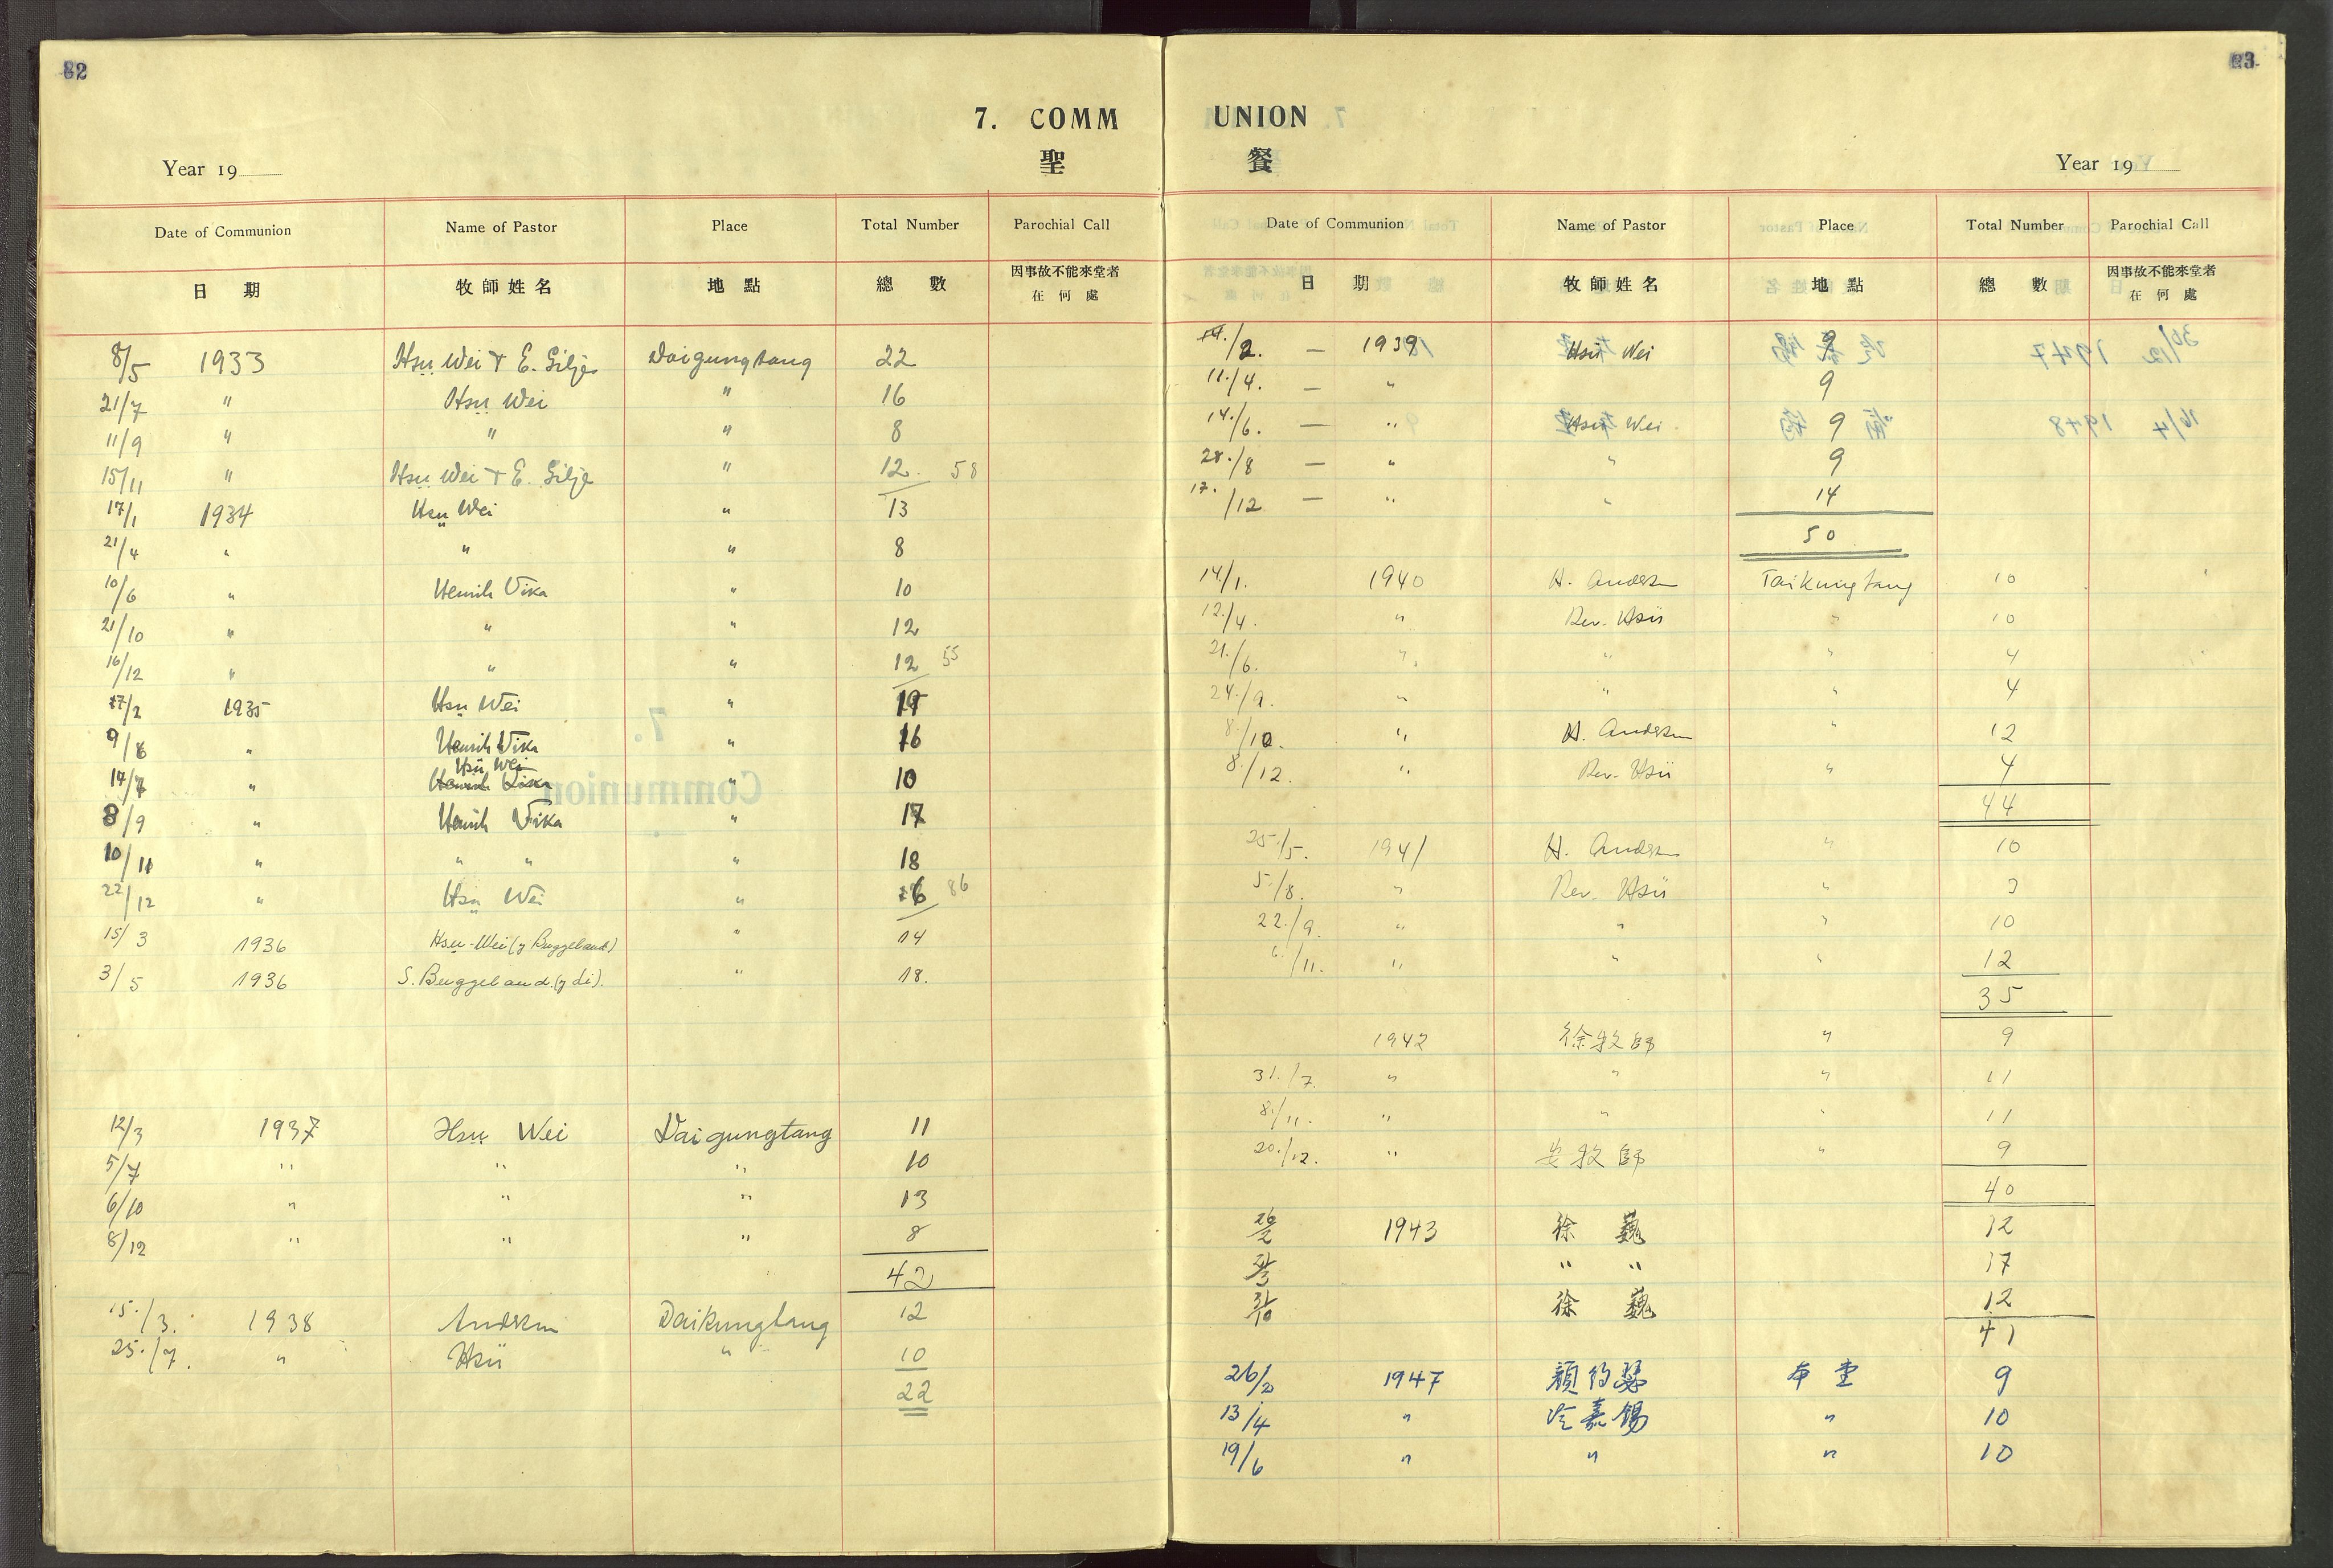 82
7. COMM
聖
Year 19
Date of Communion Name of Pastor Place Total Number Parochial Call
日 期 牧師姓名 地點 總 數 因事故不能來堂者
在何處
8/5 1933 Hsu Wei + E. Gilje Daigungtang 22
21/7 " Hsu Wei " 16
11/9 " " " 8
15/11 " Hsu Wei + E. Gilje " 12 58
17/1 1934 Hsu Wei " 13
21/4 " " " 8
10/6 " Henrik Vika " 10
21/10 " " " 12
16/12 " " " 12 55
17/2 1935 Hsu Wei " 19
9/6 " Henrik Vika " 16
Hsü Wei
14/7 " Henrik Vika " 10
8/9 " Henrik Vika " 17
10/11 " " " " 18
22/12 " Hsu Wei " 6 86
15/3 1936 Hsu-Wei (y Buggeland) " 14
3/5 1936 S. Buggeland (y di). " 18.
12/3 1937 Hsu Wei Daigungtang 11
5/7 " " " 10
6/10 " " " 13
8/12 " " " 8
42
15./3. 1938 Andersen Daikungtang 12
25./7. " Hsü " 10
22
83
UNION
餐
Year 19
Date of Communion Name of Pastor Place Total Number Parochial Call
日 期 牧師姓名 地點 總 數 因事故不能來堂者
在何處
14./2. — 1939 Hsü Wei 9
11./4. — " 9
14./6. — " Hsü Wei 9
28./8 — " " 9
17./12 — " " 14
50
14./1. 1940 H. Andersen Taikungtang 10
12./4. " Rev. Hsü " 10
21./6. " " " 4
24./9. " " " 4
8./10. " H. Andersen " 12
8./12. " Rev. Hsü " 4
44
25./5. 1941 H. Andersen " 10
5./8. " Rev. Hsü " 3
22./9. " " " 10
6./11. " " " 12
35
1942 徐牧師 " 9
31./7. " " " 11
8./11. " " " 11
20./12. " 安牧師 " 9
40
26/2 1943 徐 巍 12
" " 17
徐 巍 12
41
26/2 1947 顏約瑟 本堂 9
13/4 " 嘉錫 " 10
19/6 " " " 10